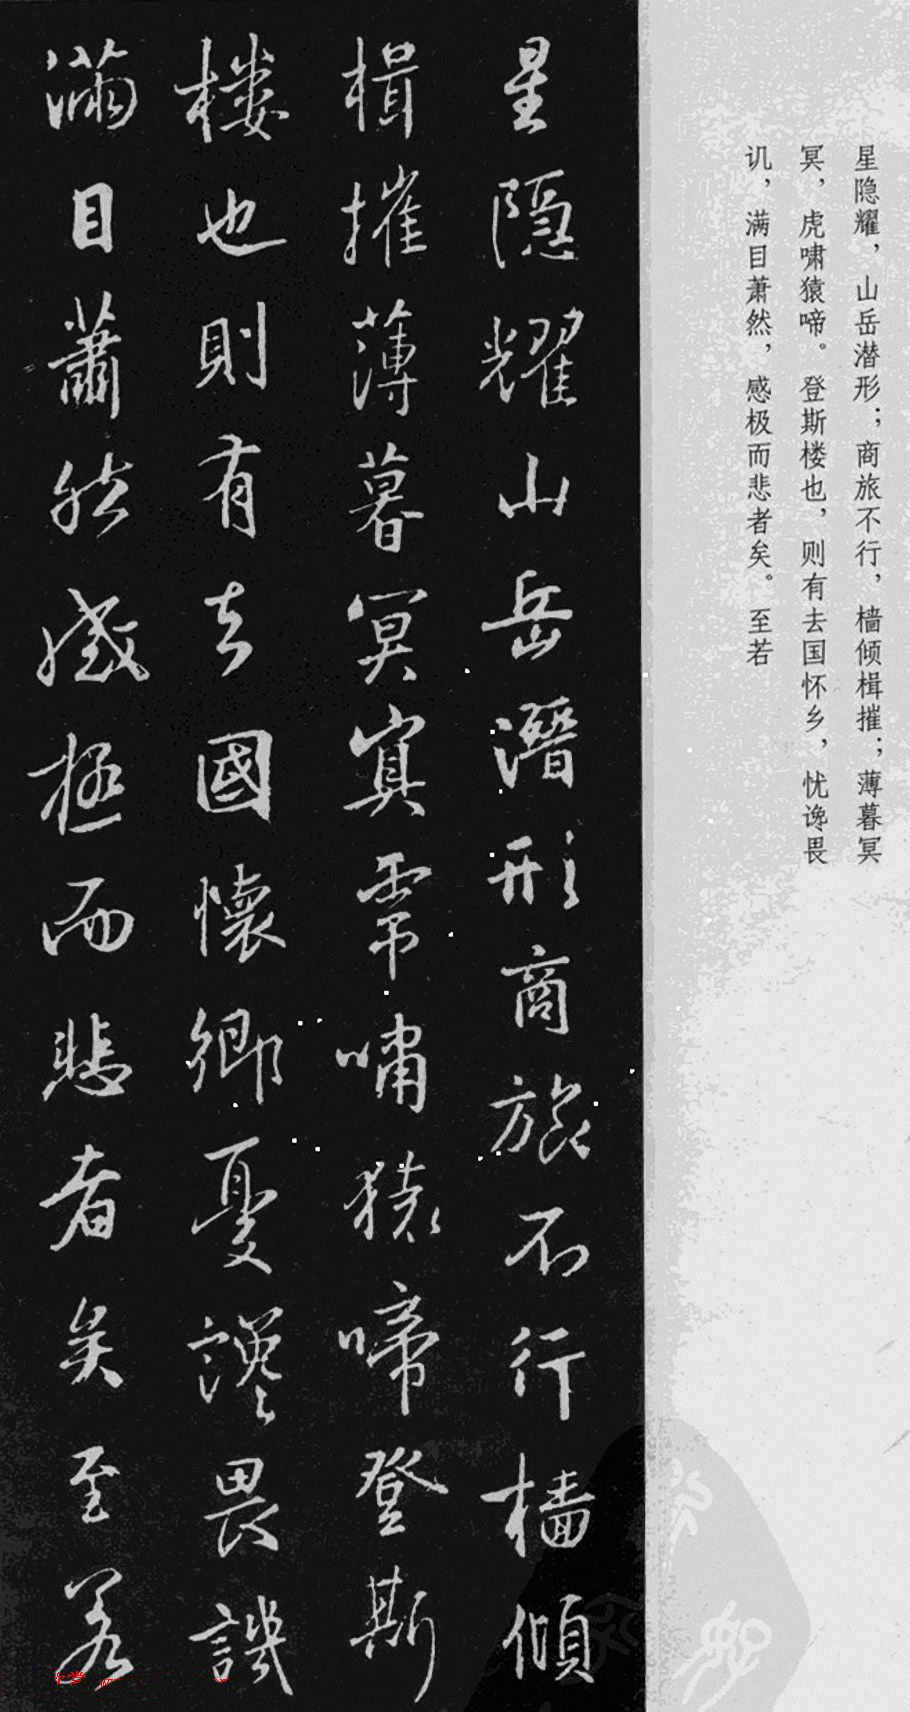 星隐耀，山岳潜形；商旅不行，樯倾楫摧；薄暮冥
冥，虎啸猿啼。登斯楼也，则有去国怀乡，忧谗畏
讥，满目萧然，感极而悲者矣。至若
星隱耀山岳潛形商旅不行檣傾
楫摧薄暮冥冥虎嘯猿啼登斯
楼也則有去國懷鄉憂讒畏譏
滿目蕭然感極而悲者矣至若